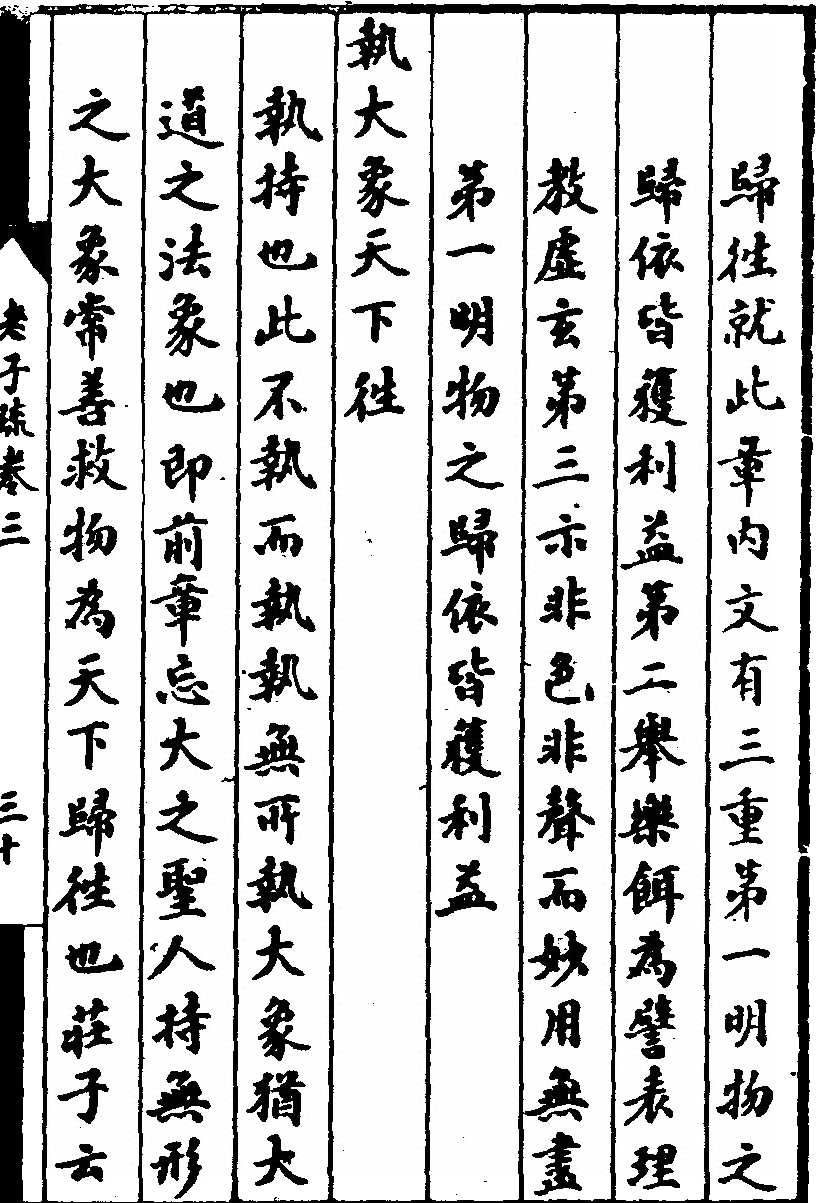 歸徃就此章内文有三重第一明物之
歸依皆獲利益第二舉樂餌為譬表理
教虛玄第三示非色非聲而妙用無盡
第一明物之歸依皆獲利益
執大象天下徃
執持也此不執而執執無所執大象猶大
道之法象也即前章忘大之聖人持無形
之大象常善救物為天下歸徃也莊子云
老子疏卷三
三十